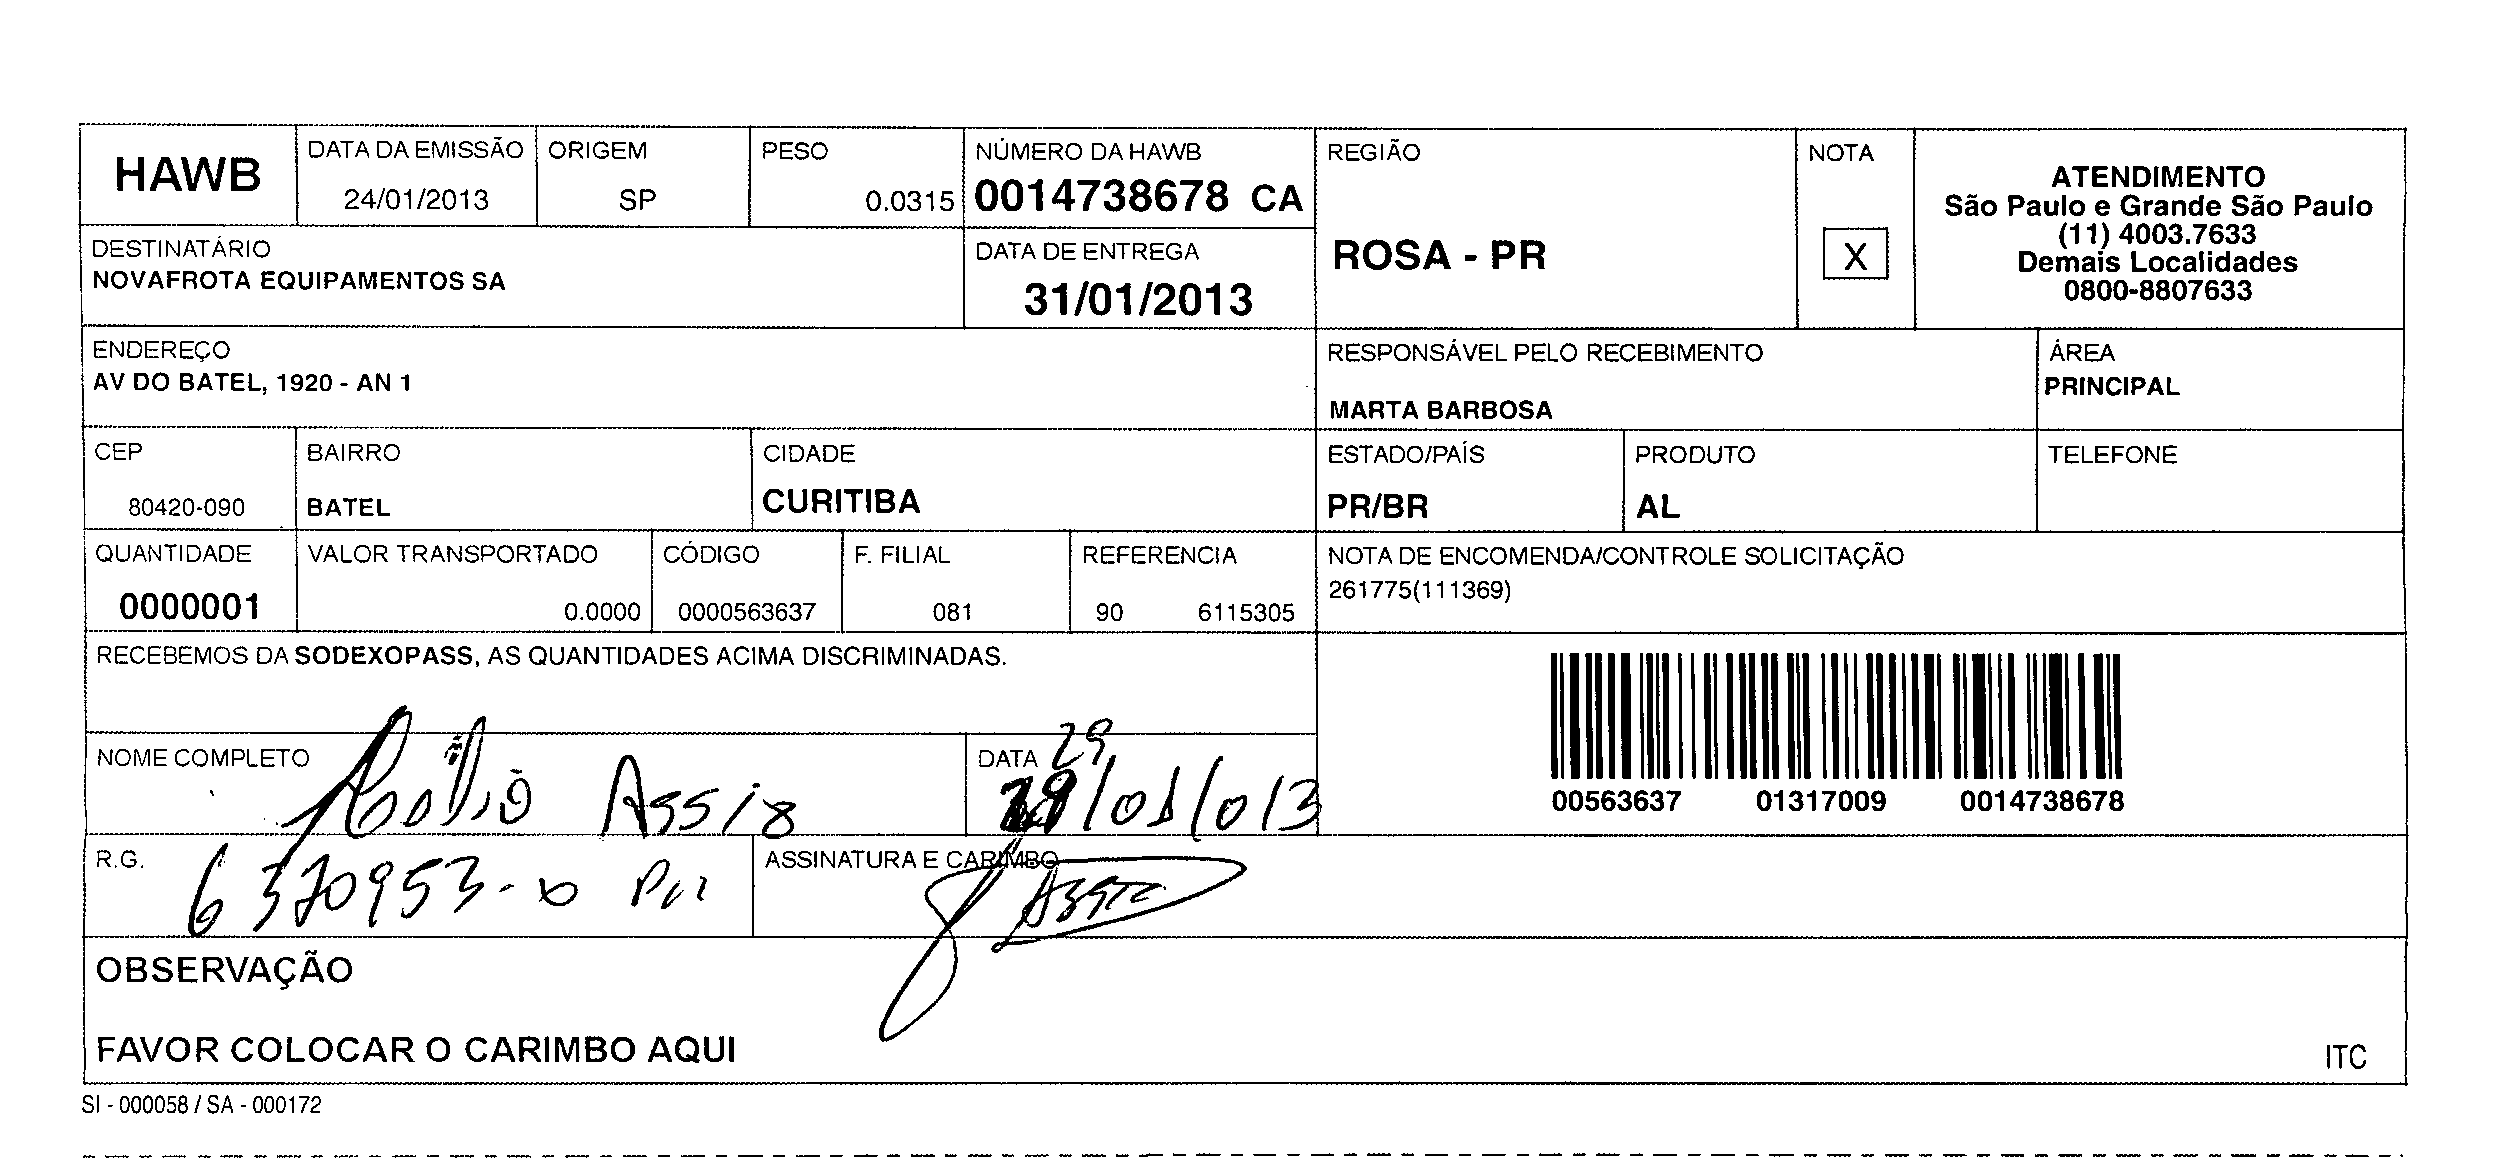 HAWB
DATA DA EMISSÃO
24/01/2013
ORIGEM
SP
PESO
0.0315
NÚMERO DA HAWB
0014738678 CA
REGIÃO
ROSA - PR
NOTA
X
ATENDIMENTO
São Paulo e Grande São Paulo
(11) 4003.7633
Demais Localidades
0800-8807633
DESTINATÁRIO
NOVAFROTA EQUIPAMENTOS SA
DATA DE ENTREGA
31/01/2013
ENDEREÇO
AV DO BATEL, 1920 - AN 1
RESPONSÁVEL PELO RECEBIMENTO
MARTA BARBOSA
ÁREA
PRINCIPAL
CEP
80420-090
BAIRRO
BATEL
CIDADE
CURITIBA
ESTADO/PAÍS
PR/BR
PRODUTO
AL
TELEFONE
QUANTIDADE
0000001
VALOR TRANSPORTADO
0.0000
CÓDIGO
0000563637
F. FILIAL
081
REFERENCIA
90 6115305
NOTA DE ENCOMENDA/CONTROLE SOLICITAÇÃO
261775(111369)
RECEBEMOS DA SODEXOPASS, AS QUANTIDADES ACIMA DISCRIMINADAS.
00563637 01317009 0014738678
NOME COMPLETO
Assis
DATA
29
/01/013
R.G.
6370953-0
ASSINATURA E CARIMBO
OBSERVAÇÃO
FAVOR COLOCAR O CARIMBO AQUI
ITC
SI - 000058 / SA - 000172